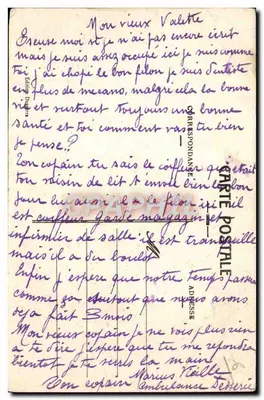 Mon vieux Valette
Excuse moi si je n'ai pas encore écrit
mais je suis assez occupé ici je suis comme
toi j'ai chopé le bon filon je suis dentiste
plus de mecano, malgré cela la bonne
vie et surtout toujours une bonne
santé et toi comment vas tu bien
je pense?
Ton copain tu sais le coiffeur qui était
ton voisin de lit t'envoi bien le bon
jour lui aussi il a le filon ici il
est coiffeur garde magazin et
infirmier de salle il est tranquille
mais il a du boulot
Enfin j'espere que notre temps passe
comme ça surtout que nous avons
deja fait 3 mois
Mon vieux copain je ne vois plus rien
a te dire j'espere que tu me repondra
bientot je te serre la main
Ton copain Marius Vieille
ambulance
CORRESPONDANCE
CARTE POSTALE
ADRESSE